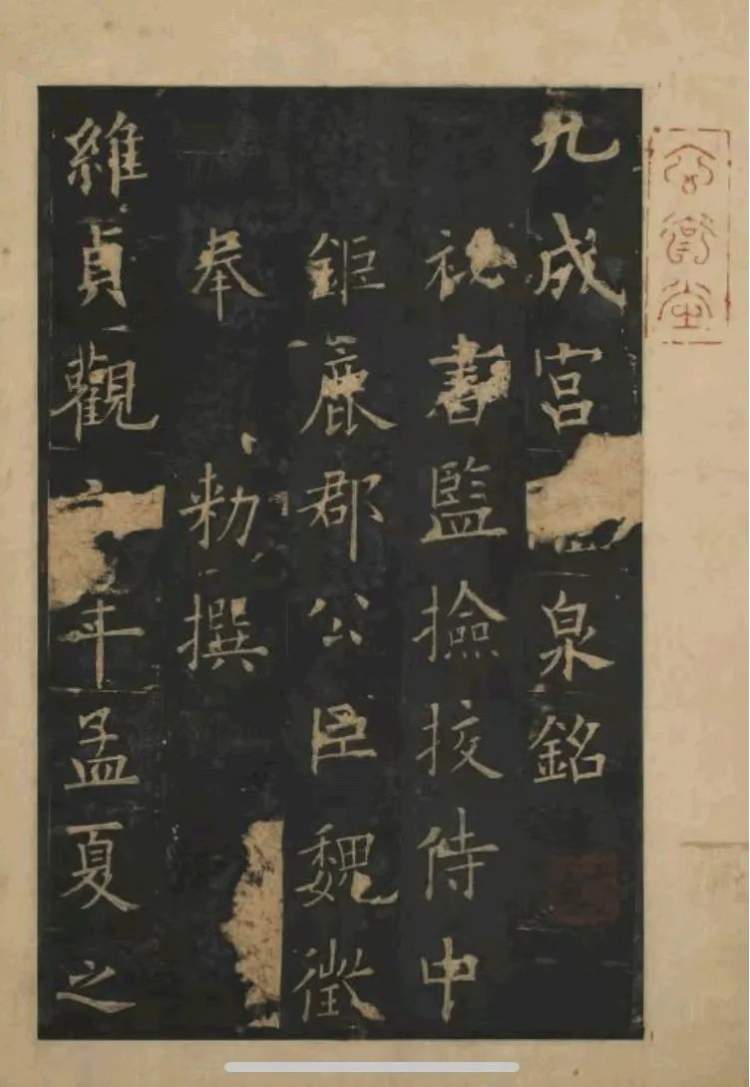 九成宮泉銘
祕書監撿挍侍中
鉅鹿郡公臣魏徵
奉 勑撰
維貞觀年孟夏之